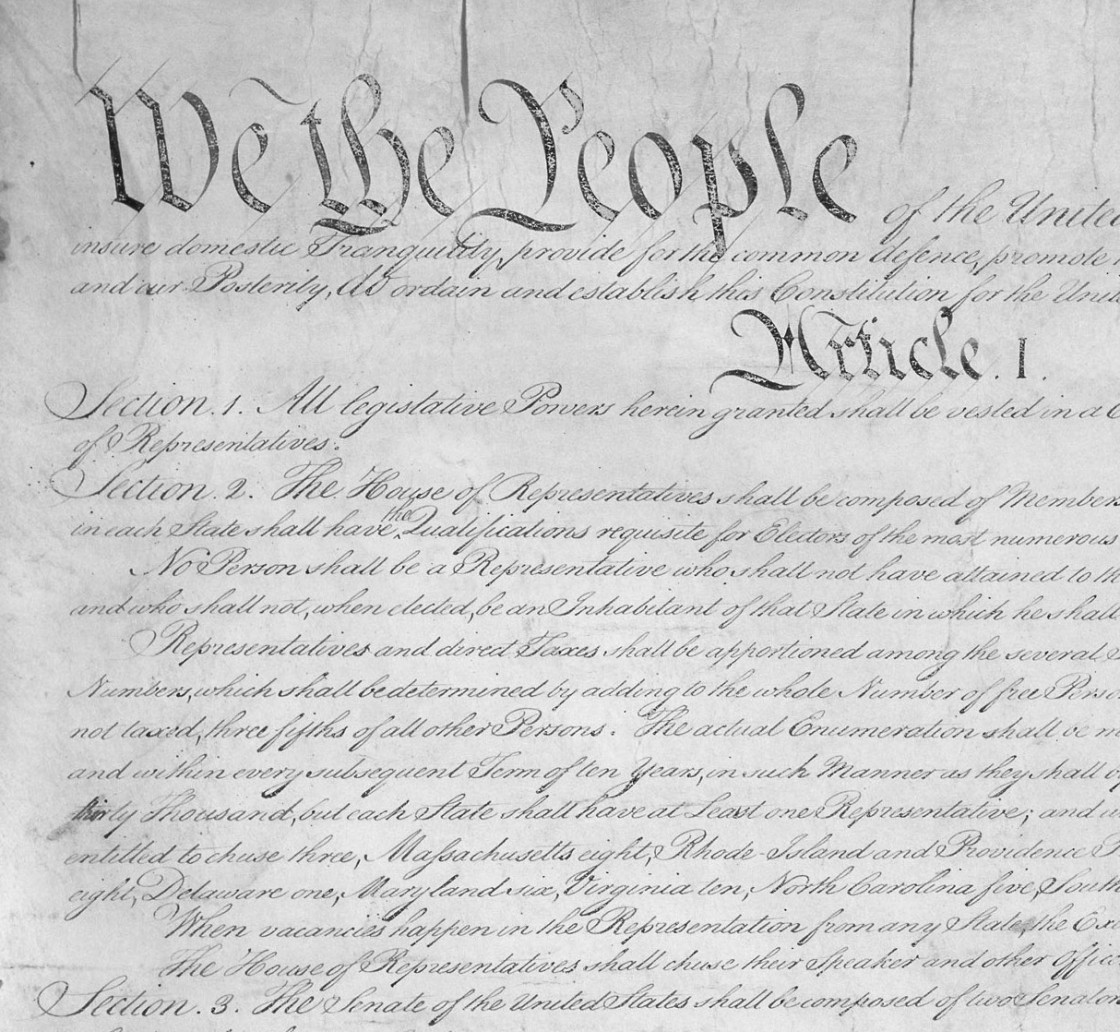 We the People of the Unite
insure domestic Tranquility, provide for the common defence, promote
and our Posterity, do ordain and establish this Constitution for the Unit
Article. I.
Section. 1. All legislative Powers herein granted shall be vested in a C
of Representatives.
Section. 2. The House of Representatives shall be composed of Member
in each State shall have the Qualifications requisite for Electors of the most numerous
No Person shall be a Representative who shall not have attained to th
and who shall not, when elected, be an Inhabitant of that State in which he shall
Representatives and direct Taxes shall be apportioned among the several
Numbers, which shall be determined by adding to the whole Number of free Perso
not taxed, three fifths of all other Persons. The actual Enumeration shall be m
and within every subsequent Term of ten Years, in such Manner as they shall
thirty Thousand, but each State shall have at Least one Representative; and
entitled to chuse three, Massachusetts eight, Rhode-Island and Providence P
eight, Delaware one, Maryland six, Virginia ten, North Carolina five, South
When vacancies happen in the Representation from any State, the Ex
The House of Representatives shall chuse their Speaker and other Offic
Section. 3. The Senate of the United States shall be composed of two Senators